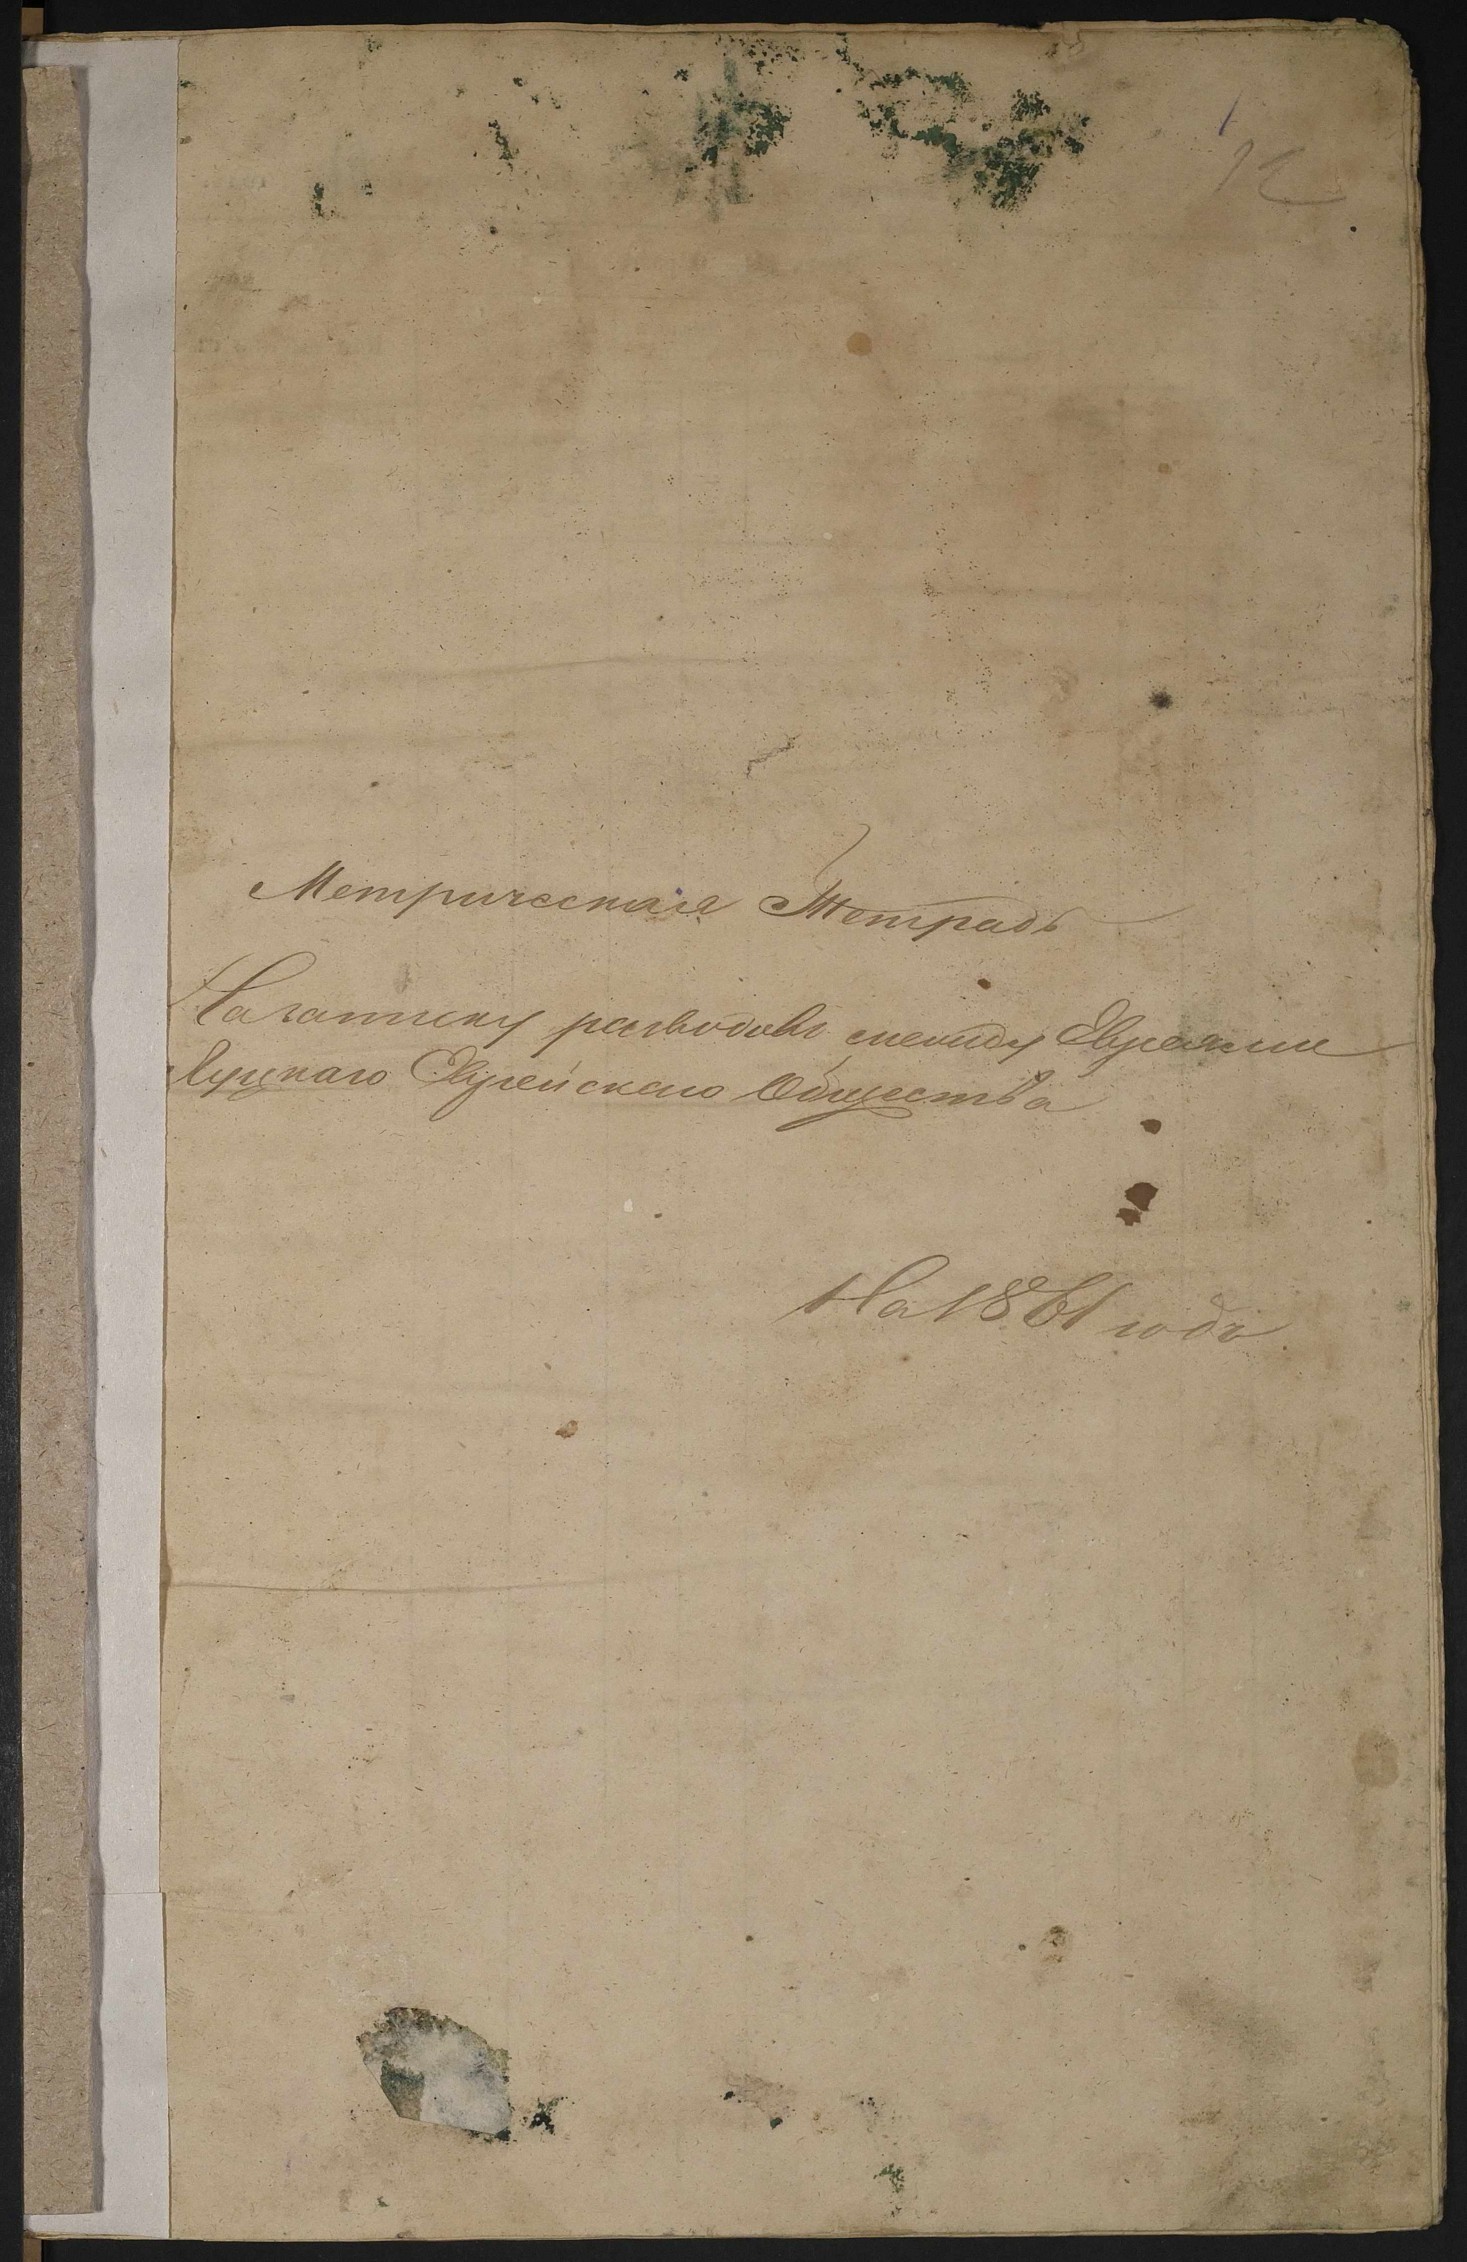 1
12
Метрическая Тетрадь
На записку разводовъ между Евреями
Луцкаго Еврейскаго Общества
На 1861 годъ